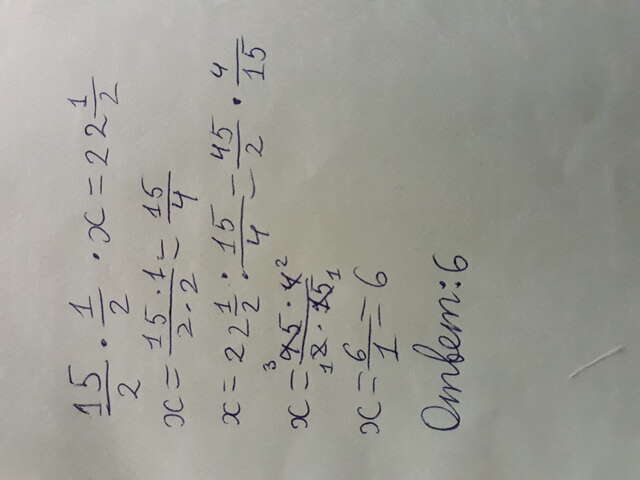 15/2 · 1/2 · x = 22 1/2
x = 15·1/2·2 = 15/4
x = 22 1/2 : 15/4 = 45/2 · 4/15
x = ³45 · 4²/₁2 · 15₁
x = 6/1 = 6
Ответ: 6